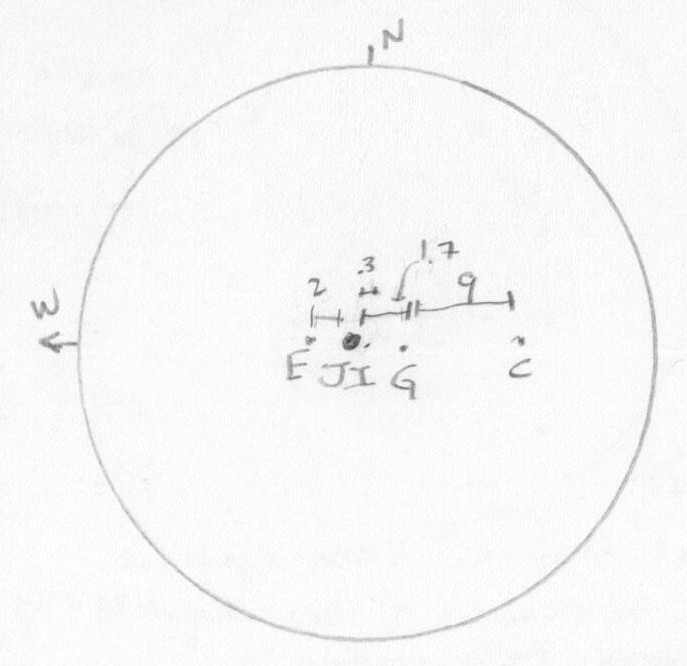 N
W
2 .3 1.7 9
E J I G C